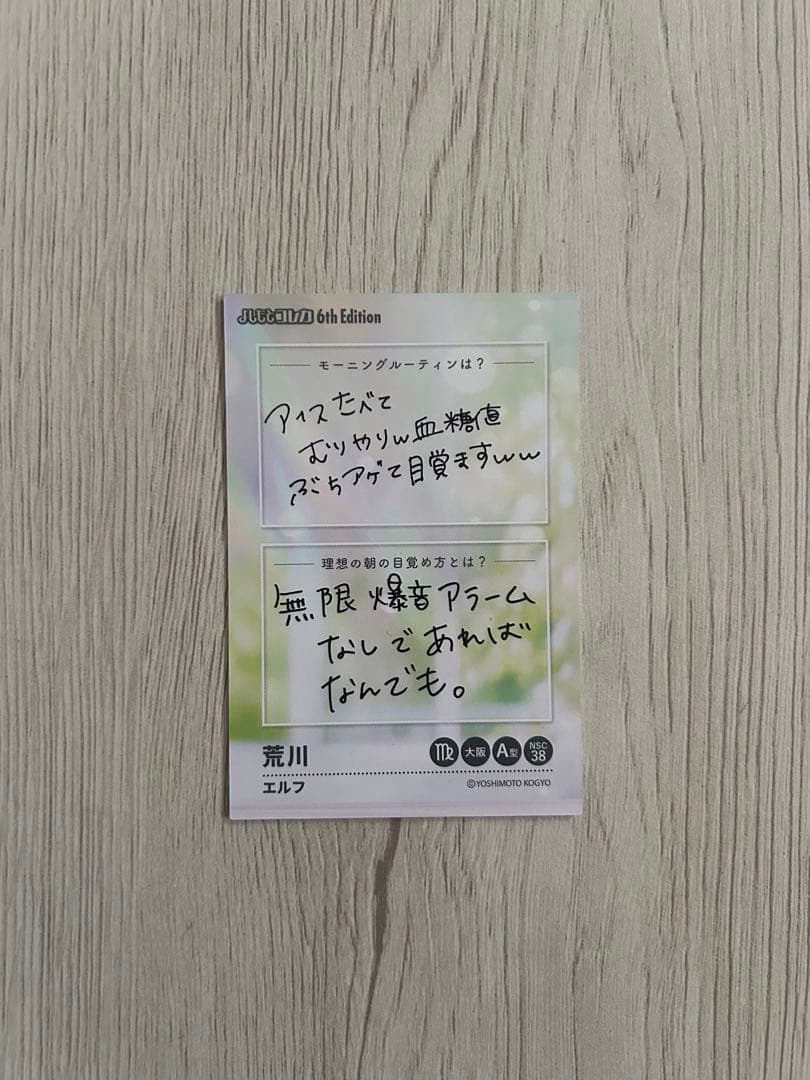 よしもとコレカ 6th Edition
モーニングルーティンは？
アイスたべて
むりやりw血糖値
ぶちアゲて目覚ますww
理想の朝の目覚め方とは？
無限爆音アラーム
なしであれば
なんでも。
荒川
♍ 大阪 A型 NSC 38
エルフ
©YOSHIMOTO KOGYO